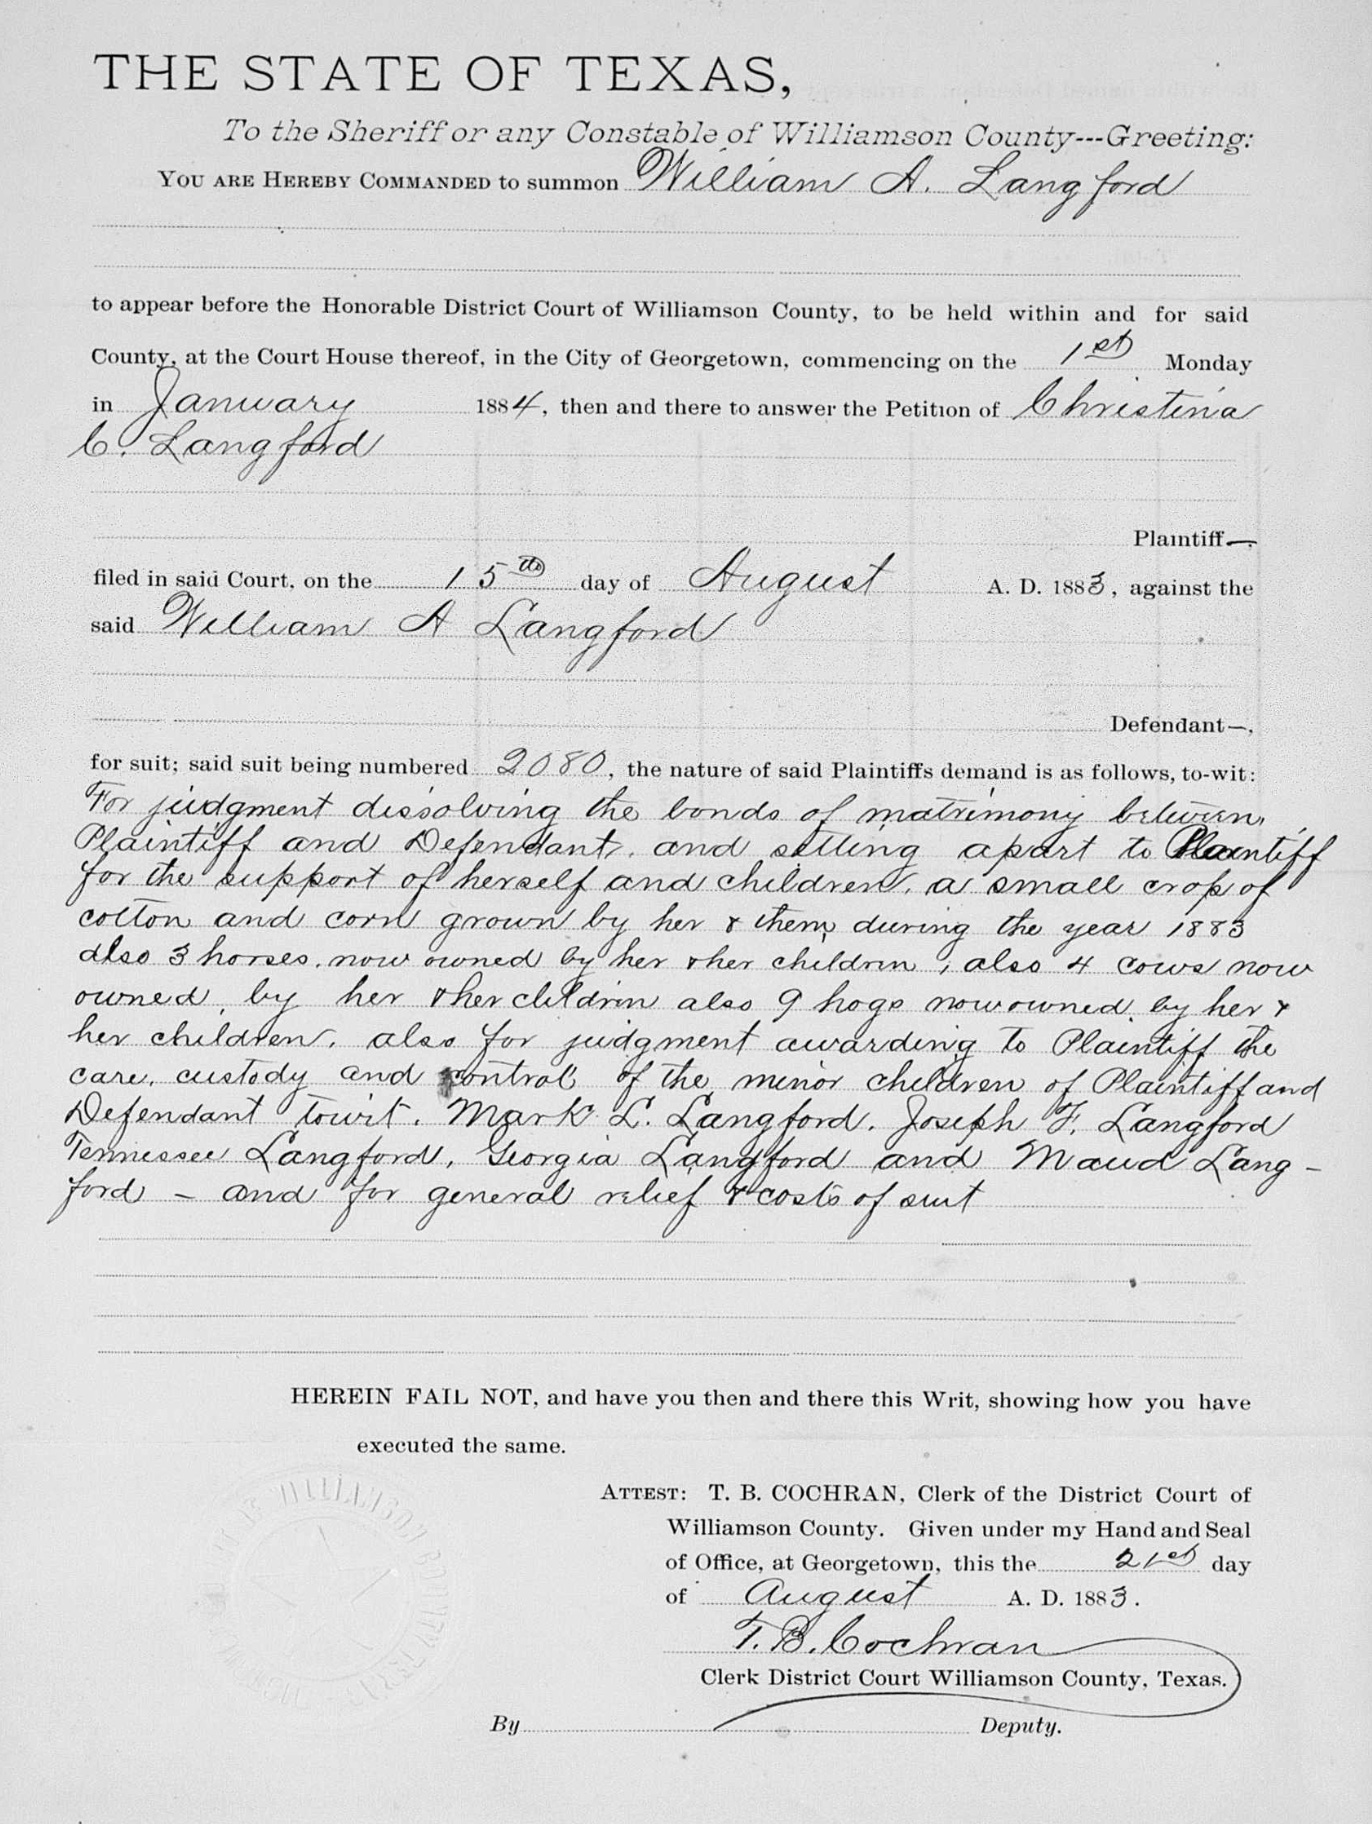 THE STATE OF TEXAS,
To the Sheriff or any Constable of Williamson County---Greeting:
YOU ARE HEREBY COMMANDED to summon William A. Langford
to appear before the Honorable District Court of Williamson County, to be held within and for said
County, at the Court House thereof, in the City of Georgetown, commencing on the 1st Monday
in January 1884, then and there to answer the Petition of Christina
C. Langford
Plaintiff—.
filed in said Court, on the 15th day of August A. D. 1883, against the
said William A Langford
Defendant—.
for suit; said suit being numbered 2080, the nature of said Plaintiffs demand is as follows, to-wit:
For judgment dissolving the bonds of matrimony between
Plaintiff and Defendant, and setting apart to Plaintiff
for the support of herself and children, a small crop of
cotton and corn grown by her & them, during the year 1883
also 3 horses, now owned by her & her children, also 4 cows now
owned by her & her children also 9 hogs now owned by her &
her children, also for judgment awarding to Plaintiff the
care, custody and control of the minor children of Plaintiff and
Defendant towit. Mark L. Langford, Joseph F. Langford
Tennessee Langford, Georgia Langford and Maud Lang-
ford – and for general relief & costs of suit
HEREIN FAIL NOT, and have you then and there this Writ, showing how you have
executed the same.
ATTEST: T. B. COCHRAN, Clerk of the District Court of
Williamson County. Given under my Hand and Seal
of Office, at Georgetown, this the 21st day
of August A. D. 1883.
T. B. Cochran
Clerk District Court Williamson County, Texas.
By Deputy.
WILLIAMSON COUNTY TEXAS